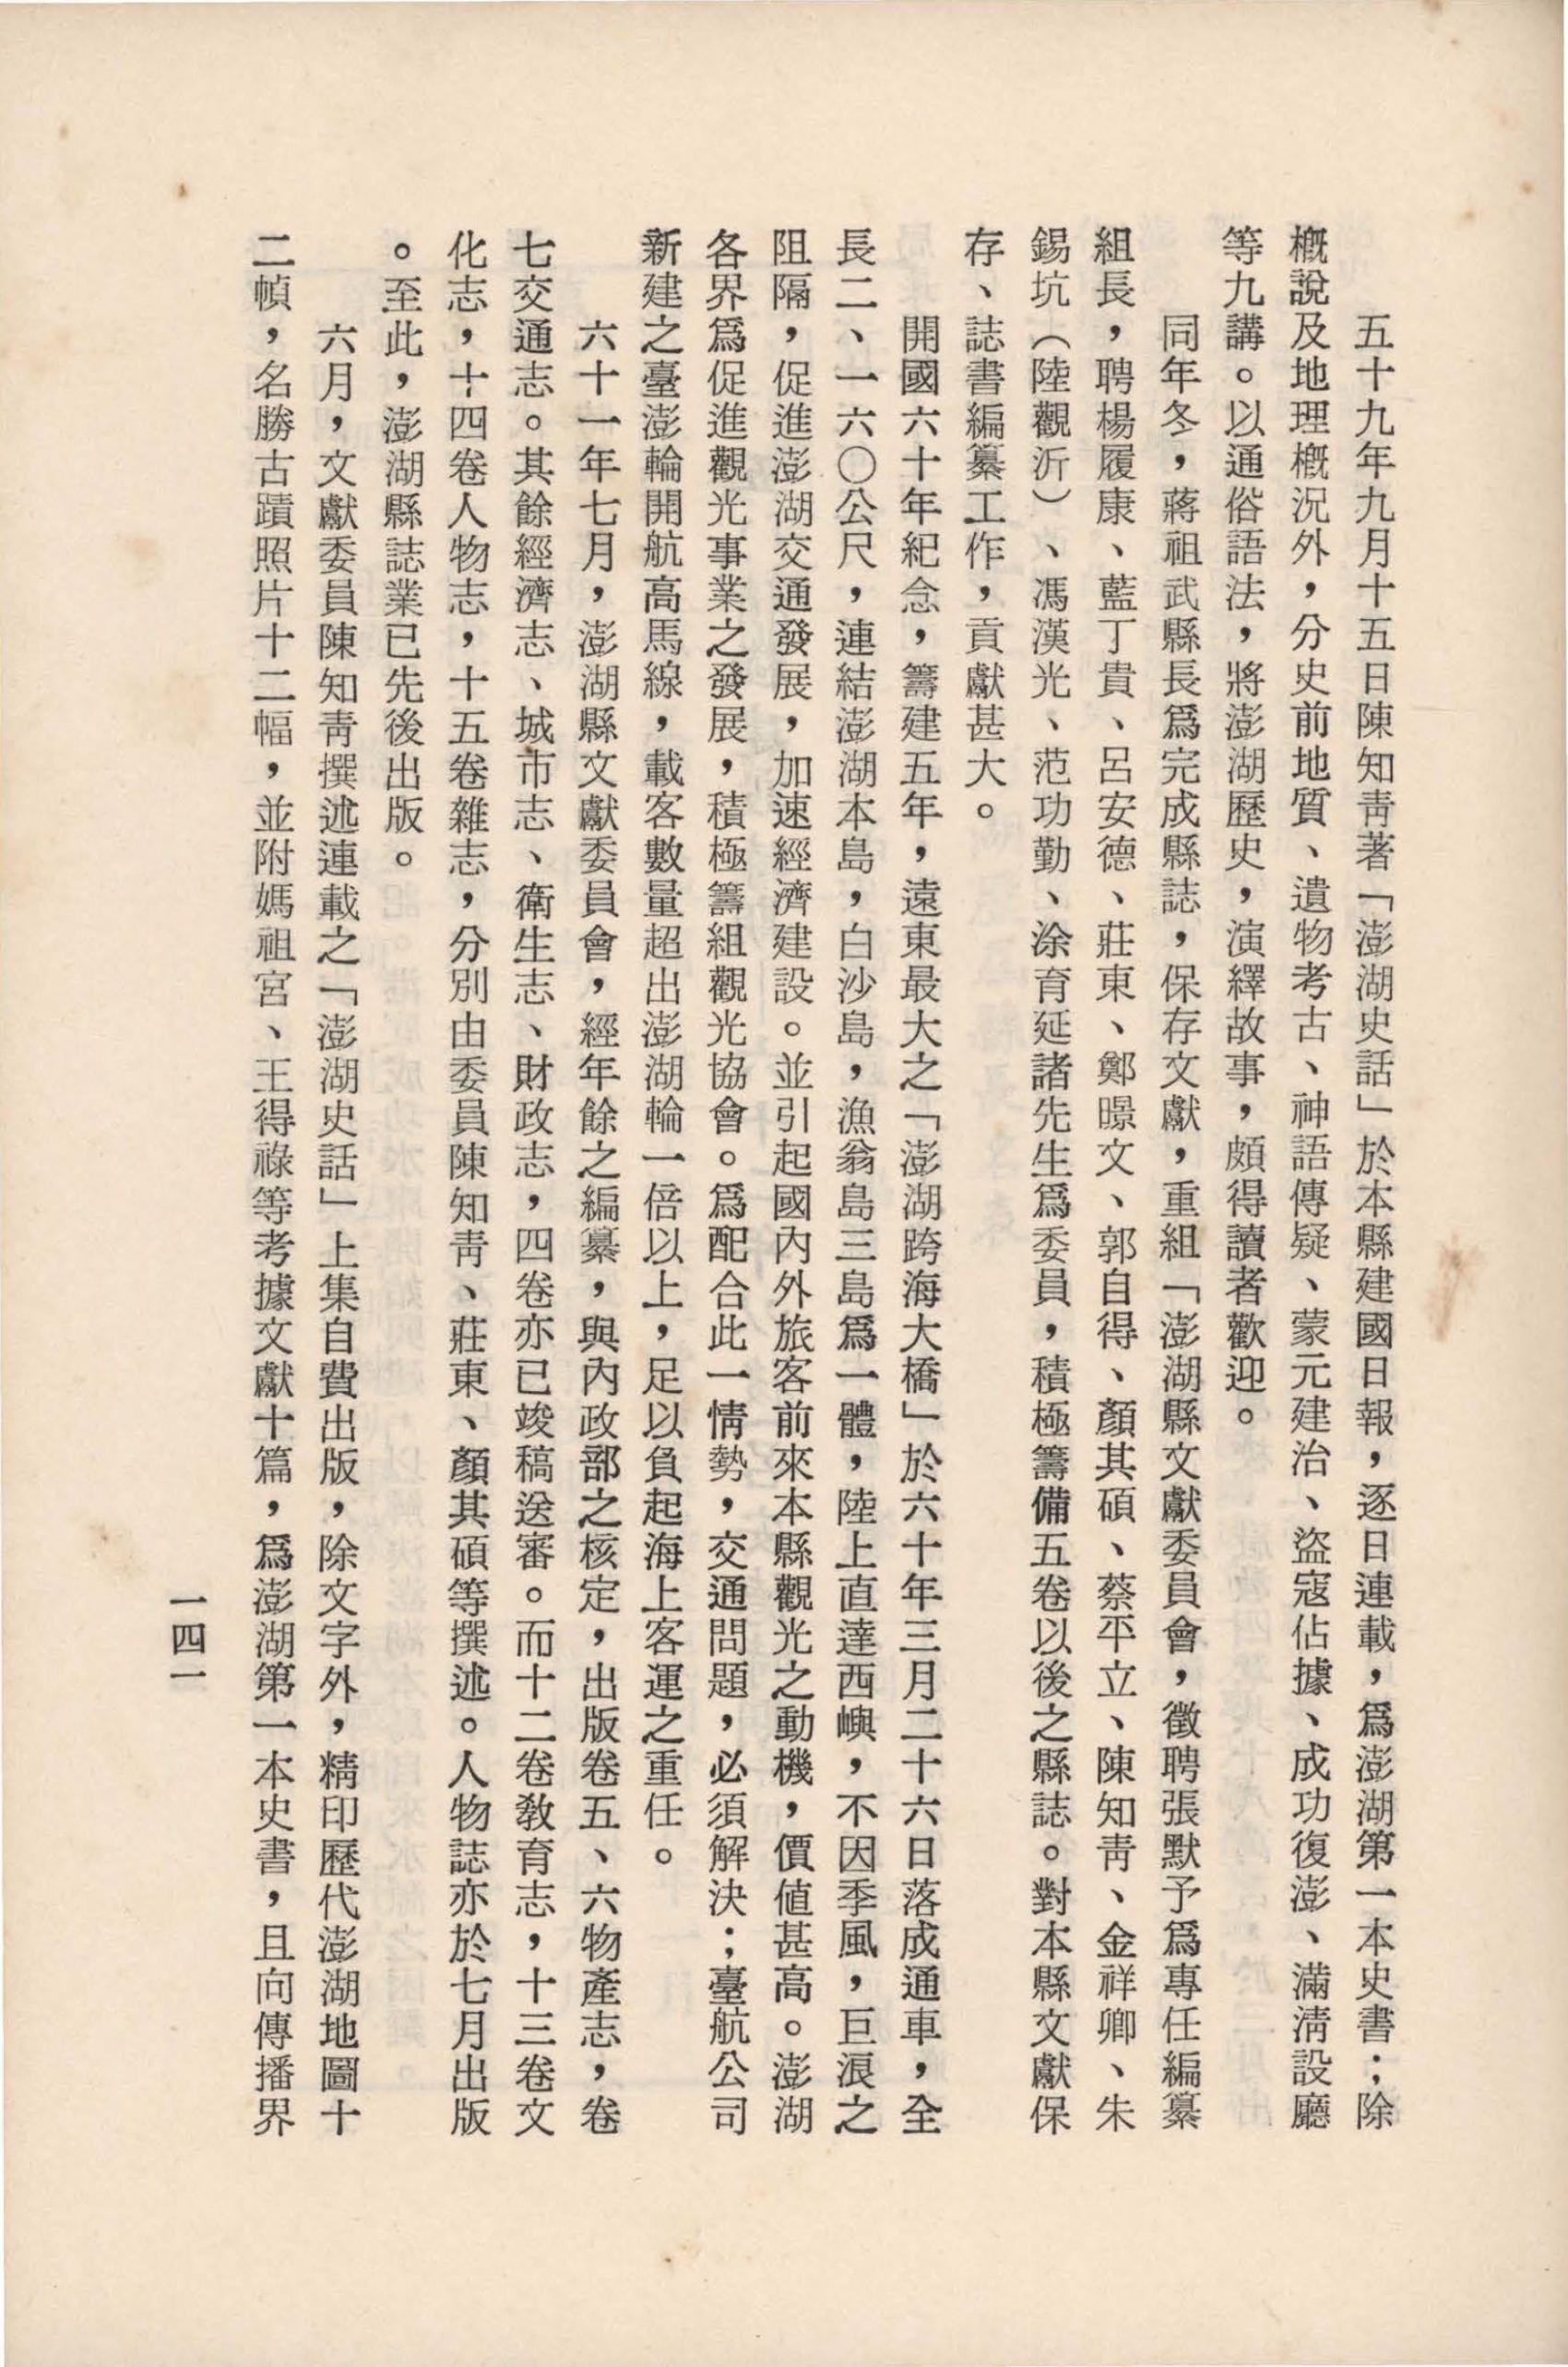 五十九年九月十五日陳知青著「澎湖史話」於本縣建國日報，逐日連載，爲澎湖第一本史書；除
概說及地理概況外，分史前地質、遺物考古、神語傳疑、蒙元建治、盜寇佔據、成功復澎、滿淸設廳
等九講。以通俗語法，將澎湖歷史，演繹故事，頗得讀者歡迎。
同年冬，蔣祖武縣長爲完成縣誌，保存文獻，重組「澎湖縣文獻委員會，徵聘張默予爲專任編纂
組長，聘楊履康、藍丁貴、呂安德、莊東、鄭暻文、郭自得、顏其碩、蔡平立、陳知靑、金祥卿、朱
錫坑（陸觀沂）、馮漢光、范功勤、涂育延諸先生爲委員，積極籌備五卷以後之縣誌。對本縣文獻保
存、誌書編纂工作，貢獻甚大。
開國六十年紀念，籌建五年，遠東最大之「澎湖跨海大橋」於六十年三月二十六日落成通車，全
長二、一六〇公尺，連結澎湖本島，白沙島，漁翁島三島爲一體，陸上直達西嶼，不因季風，巨浪之
阻隔，促進澎湖交通發展，加速經濟建設。並引起國內外旅客前來本縣觀光之動機，價値甚高。澎湖
各界爲促進觀光事業之發展，積極籌組觀光協會。爲配合此一情勢，交通問題，必須解決；臺航公司
新建之臺澎輪開航高馬線，載客數量超出澎湖輪一倍以上，足以負起海上客運之重任。
六十一年七月，澎湖縣文獻委員會，經年餘之編纂，與內政部之核定，出版卷五、六物產志，卷
七交通志。其餘經濟志、城市志、衛生志、財政志，四卷亦已竣稿送審。而十二卷敎育志，十三卷文
化志，十四卷人物志，十五卷雜志，分別由委員陳知靑、莊東、顏其碩等撰述。人物誌亦於七月出版
。至此，澎湖縣誌業已先後出版。
六月，文獻委員陳知靑撰述連載之「澎湖史話」上集自費出版，除文字外，精印歷代澎湖地圖十
二幀，名勝古蹟照片十二幅，並附媽祖宮、王得祿等考據文獻十篇，爲澎湖第一本史書，且向傳播界
一四一